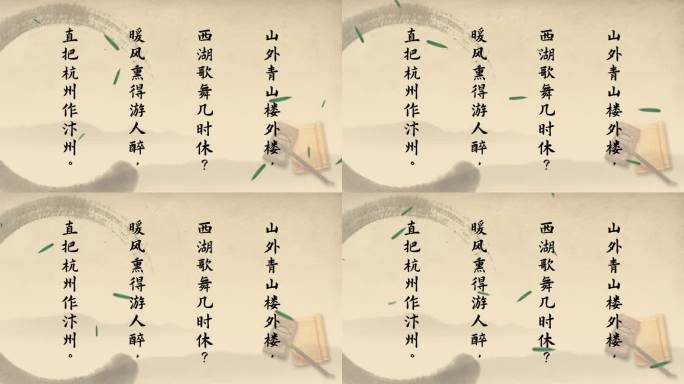 山外青山楼外楼，
西湖歌舞几时休？
暖风熏得游人醉，
直把杭州作汴州。
山外青山楼外楼，
西湖歌舞几时休？
暖风熏得游人醉，
直把杭州作汴州。
山外青山楼外楼，
西湖歌舞几时休？
暖风熏得游人醉，
直把杭州作汴州。
山外青山楼外楼，
西湖歌舞几时休？
暖风熏得游人醉，
直把杭州作汴州。